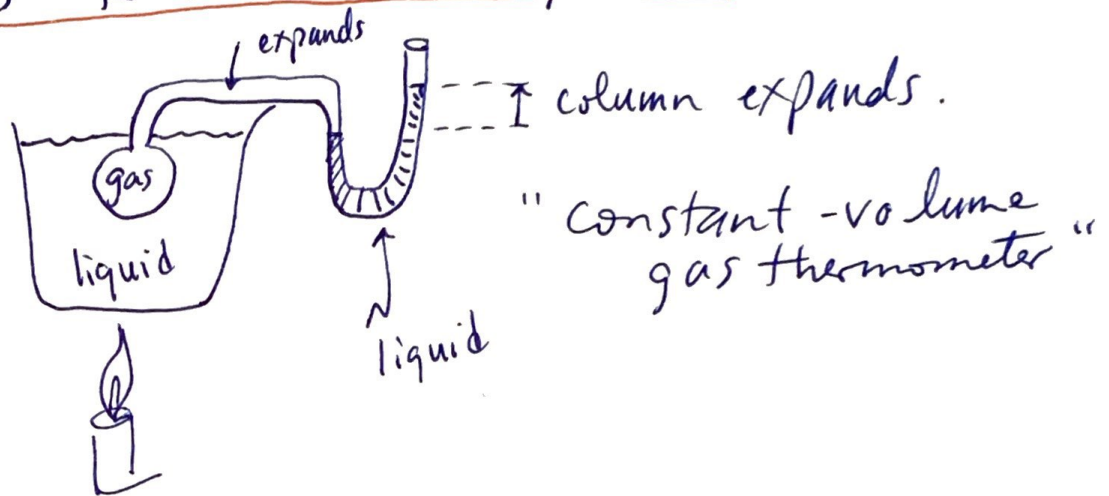 expands
column expands.
gas
"constant-volume
gas thermometer"
liquid
liquid